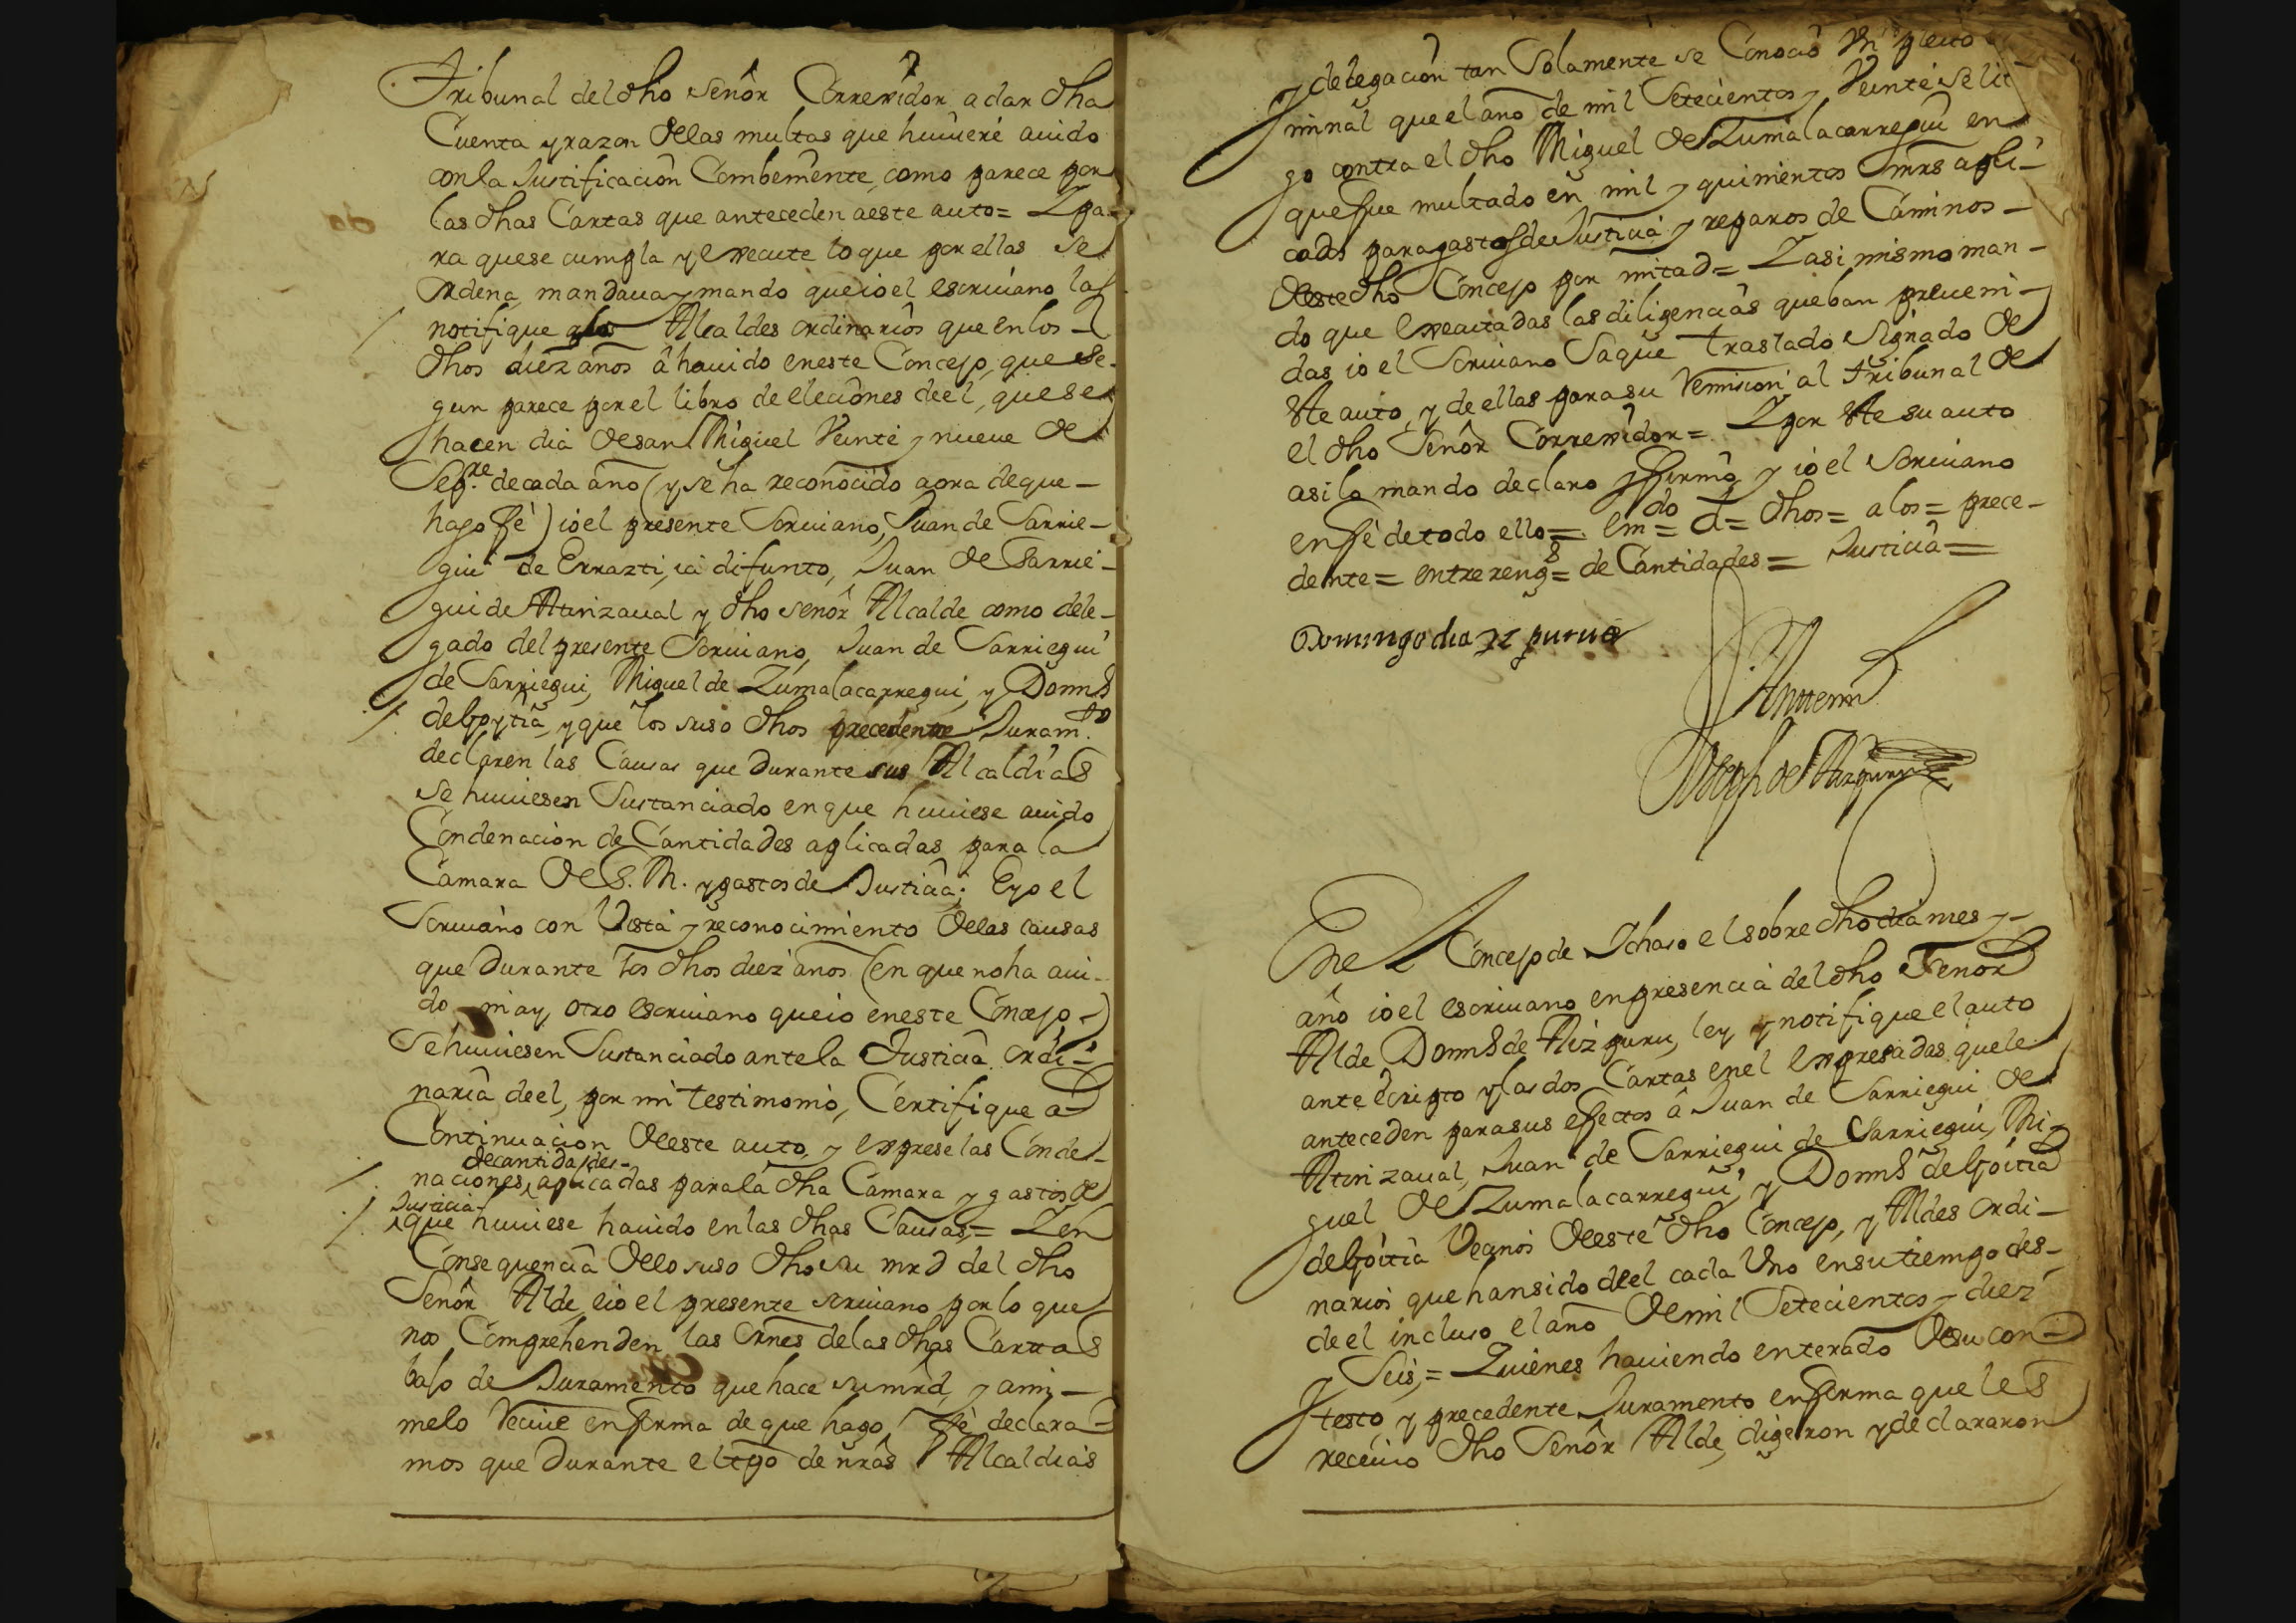 Tribunal del dho señor Correxidor a dar dha
Cuenta y razon de las multas que huuiere auido
con la Justificacion Combemente, como parece por
las dhas Cartas que anteceden a este auto = Y pa-
ra que se cumpla y execute lo que por ellas se
ordena, mandaua y mando que io el escriuano las
notifique a los Alcaldes ordinarios que en los
dhos diez años à hauido en este Concejo, que se-
gun parece por el libro de eleciones de el, que se
hacen dia de san Miguel Veinte y nueue de
Sepre. de cada año (y se ha reconocido aora de que
hago fè) io el presente Scriuano, Juan de Sarrie-
gui de Errazti, ia difunto, Juan de Sarrie-
gui de Aturizaual y dho señor Alcalde como dele-
gado del presente Scriuano, Juan de Sarriegui
de Sarriegui, Miguel de Zumalacarregui, y Domᵒ
de Goytia, y que los suso dhos precedente Juramto.
declaren las Causas que durante sus Alcaldias
se huuiesen Sustanciado en que huuiese auido
Condenacion de Cantidades aplicadas para la
Camara de S. M. y gastos de Justicia; E yo el
Scriuano con Vista y reconocimiento de las causas
que durante los dhos diez años (en que no ha aui-
do ni ay otro escriuano que io en este Concejo)
se huuiesen Sustanciado ante la Justicia ordi-
naria de el, por mi testimonio, Certifique a
Continuacion de este auto, y exprese las Conde-
de cantidades
naciones aplicadas para la dha Camara y gastos de
Justicia
que huuiese hauido en las dhas Causas, = Y en
Consequencia de lo suso dho su mrd del dho
Señor Alde, e io el presente scriuano por lo que
nos Comprehenden las ornes de las dhas Cartas
bajo de Juramento que hace su mrd, y a mi
me lo reciue en forma de que hago fè declara-
mos que durante el tpo de nras Alcaldias
y delegacion tan Solamente se Conocio Vn pleito
minal que el año de mil Setecientos y Veinte se liti
go contra el dho Miguel de Zumalacarregui en
que fue multado en mil y quinientos mrs apli-
cads para gastos de Justicia y reparos de Caminos
de este dho Concejo por mitad = Y asi mismo man-
do que executadas las diligencias que ban preueni-
das io el Scriuano Saque traslado signado de
este auto, y de ellas para su remision al tribunal de
el dho Señor Correxidor = Y por este su auto
asi lo mando declaro y firmò y io el Scriuano
en fè de todo ello = emdo = d = dhos = a los = prece-
dente = entre rengs = de Cantidades = Justicia =
Domingo dia
Antemi
Joseph de
En el Concejo de Ichaso el sobre dho dia mes y
año io el escriuano en presencia del dho Señor
Alde Domᵒ de Aizpuru, ley y notifique el auto
ante escripto y las dos Cartas en el expresadas que le
anteceden para sus efectos à Juan de Sarriegui de
Aturizaual, Juan de Sarriegui de Sarriegui, Mi-
guel de Zumalacarregui, y Domᵒ de Goitia
de Goitia Vecinos de este dho Concejo, y Aldes ordi-
narios que han sido de el cada Vno en su tiempo des-
de el incluso el año de mil Setecientos y diez
y Seis, = Quienes hauiendo enterado de su con-
testo, y precedente Juramento en forma que les
reciuio dho Señor Alde, digeron y declararon